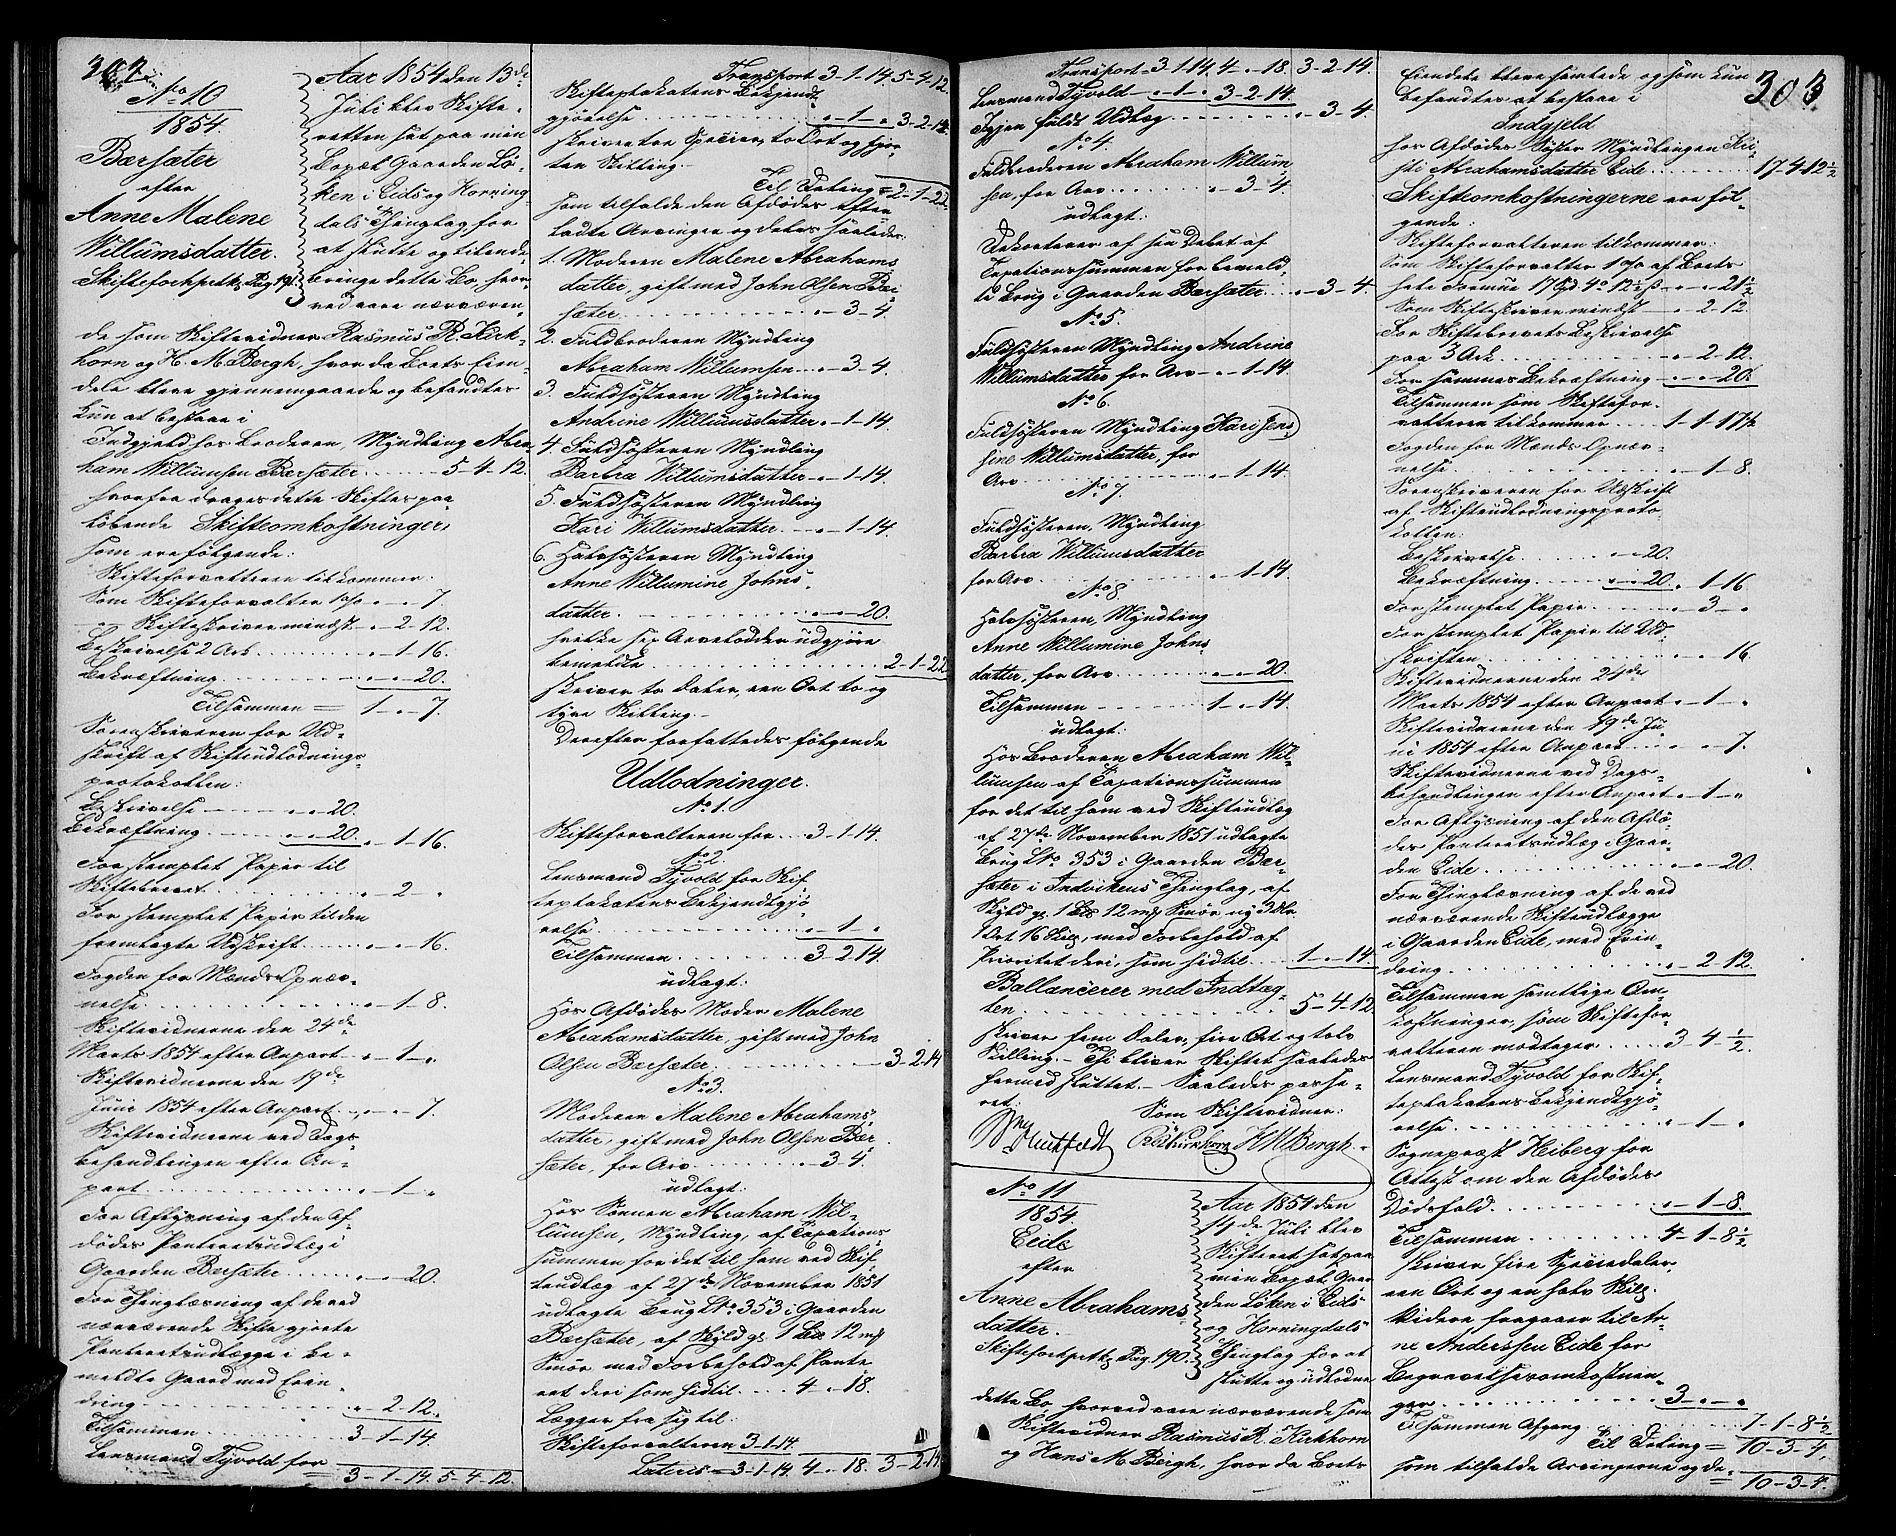 302.
No 10
1854.
Bærsæter
efter
Anne Malene
Willumsdatter.
Skifteforhprotk Pag 191.
Aar 1854 den 13de
Juli blev Skifte-
retten sat paa min
Bopæl Gaarden Lø-
ken i Eids og Horning-
dals Thinglag for
at slutte og tilende-
bringe dette Bo, hvor-
ved vare nærværen-
de som Skiftevidner Rasmus R. Kirk-
horn og H. M. Bergh, hvor da Boets Eien-
dele bleve gjennemgaaede og befandtes
kun at bestaae i
Indgjeld hos Broderen, Myndling Abra-
ham Willumsen Bærsæter . . . . 5-4-12.
hvorfra drages dette Skiftes paa
løbende Skifteomkostninger,
som ere følgende:
Skifteforvalteren tilkommer:
Som Skifteforvalter 1 o/o „-„-7.
„ Skifteskriver mindst „-2-12.
Beskrivelse 2 Ark . . . . „-1-16.
Bekræftning . . . . „-„-20.
Tilsammen = 1-„-7.
Sorenskriveren for Ud-
skrift af Skifteudlodnings-
protokollen:
Beskrivelse . . . . „-„-20.
Bekræftning . . . . „-„-20. „-1-16.
For stemplet Papir til
Skiftebrevet . . . . „-2-„
For stemplet Papir til den
fremlagte Udskrift . . . . „-„-16.
Fogden for Mænds Opnæv-
nelse . . . . „-1-8.
Skiftevidnerne den 24de
Marts 1854 efter Anpart „-1-„.
Skiftevidnerne den 19de
Juni 1854 efter Anpart „-„-7.
Skiftevidnerne ved Dags-
behandlingen efter An-
part . . . . „-1-„
For Aflysning af den Af-
dødes Panteretsudlæg i
Gaarden Bærsæter . . . . „-„-20.
For Thinglæsning af de ved
nærværende Skifte gjorte
Panteretsudlægge i be-
meldte Gaard med Erin-
dring . . . . „-2-12.
Tilsammen . . . . 3-1-14.
Lensmand Tyvold for
= 3-1-14. 5-4-12.
Transport 3-1-14. 5-4-12.
Skifteplakatens Bekjendt-
gjørelse . . . . „-1-„ 3-2-14.
skriver tre Specier, to Ort og fjor-
ten Skilling.
Til Deling = 2-1-22.
som tilfalde den Afdødes efter-
ladte Arvinger og deles saaledes:
1. Moderen Malene Abrahams
datter, gift med John Olsen Bær
sæter . . . . „-3-4.
2. Fuldbroderen Myndling
Abraham Willumsen . . „-3-4.
3. Fuldsøsteren Myndling
Andrine Willumsdatter „-1-14.
4. Fuldsøsteren Myndling
Barbra Willumsdatter „-1-14.
5. Fuldsøsteren Myndling
Kari Willumsdatter . . „-1-14.
6. Halvsøsteren Myndling
Anne Willumine Johns-
datter . . . . „-„-20.
hvilke sex Arvelodder udgjøre
bemeldte . . . . 2-1-22
skriver to Daler, een Ort to og
tyve Skilling.
Derefter forfattedes følgende
Udlodninger.
No 1.
Skifteforvalteren for . . . 3-1-14.
No 2.
Lensmand Tyvold for Skif-
teplakatens Bekjendtgjø-
relse . . . . „-1-„
Tilsammen . . . . 3-2-14.
udlagt:
Hos Afdødes Moder Malene
Abrahamsdatter, gift med John
Olsen Bærsæter . . . . 3-2-14
No 3.
Moderen Malene Abrahams-
datter, gift med John Olsen Bær-
sæter, for Arv . . . . „-3-4.
udlagt:
Hos Sønnen Abraham Wil-
lumsen, Myndling, af Taxations
summen for det til ham ved Skif-
teudlæg af 27de November 1851
udlagte Brug LNo 353 i Gaarden
Bærsæter, af Skyld gl. 1 Bd 12 mk
Smør med Forbehold af Pante
ret deri som hidtil . . . . 4-„-18.
Lægger fra sig til:
Skifteforvalteren 3-1-14.
Lateris = 3-1-14. 4-„-18. 3-2-14
Transport = 3-1-14. 4-„-18. 3-2-14.
Lensmand Tyvold „-1-„ 3-2-14.
Igjen fuldt Udlæg . . . . „-3-4.
No 4.
Fuldbroderen Abraham Willum-
sen, for Arv . . . . „-3-4.
udlagt:
Dekorterer af sin Debet af
Taxationssummen for bemeld-
te Brug i Gaarden Bærsæter . . „-3-4.
No 5.
Fuldsøsteren Myndling Andrine
Willumsdatter for Arv „-1-14.
No 6.
Fuldsøsteren Myndling Kari Jens-
sine Willumsdatter, for
Arv . . . . „-1-14.
No 7.
Fuldsøsteren, Myndling
Barbra Willumsdatter
for Arv . . . . „-1-14.
No 8.
Halvsøsteren, Myndling
Anne Willumine Johns
datter, for Arv . . . . „-„-20.
Tilsammen . . . . 1-„-14.
udlagt:
Hos Broderen Abraham Wil-
lumsen af Taxationssummen
for det til ham ved Skifteudlæg
af 27de November 1851 udlagte
Brug LNo 353 i Gaarden Bær-
sæter i Indvikens Thinglag, af
Skyld gl. 1 Bd 12 mk Smør ny 3 Dlr
1 Ort 16 Skilg, med Forbehold af
Prioritet deri, som hidtil . . 1-„-14.
Ballancerer med Indtæg-
ten . . . . 5-4-12
skriver fem Daler, fire Ort og tolv
Skilling. - Thi bliver Skiftet saaledes
hermed sluttet. - Saaledes passe-
ret.
Som Skiftevidner:
RRKirkhorn HMBergh.
No 11
1854.
Eide
efter
Anne Abrahams
datter.
Skifteforhprotk Pag. 190.
Aar 1854 den
14de Juli blev
Skifteret sat paa
min Bopæl Gaar
den Løken i Eids
og Horningdals
Thinglag for at
slutte og udlodne
dette Bo, hvorved vare nærværende som
Skiftevidner Rasmus R. Kirkhorn
og Hans M Bergh, hvor da Boets
303
Eiendele bleve samlede og som kun
befandtes at bestaae i
Indgjeld
hos Afdødes Søster Myndlingen Kri-
sti Abrahamsdatter Eide . . . 17-4-12½
Skifteomkostningerne ere føl-
gende:
Skifteforvalteren tilkommer:
Som Skifteforvalter 1 o/o af Boets
hele Formue 17 Spd 4 o 12½ ß „-„-21½
Som Skifteskriver mindst „-2-12.
For Skiftebrevets Beskrivelse
paa 3 Ark . . . . „-2-12.
For sammes Bekræftning „-„-20.
Tilsammen som Skiftefor-
valteren tilkommer . . 1-1-17½
Fogden for Mænds Opnæv-
nelse . . . . „-1-8.
Sorenskriveren for Udskrift
af Skifteudlodningsproto-
kollen:
Beskrivelse . . . . „-„-20.
Bekræftning . . . . „-„-20. „-1-16
For stemplet Papir . . . . „-3-„
For stemplet Papir til Ud-
skriften . . . . „-„-16.
Skiftevidnerne den 24de
Marts 1854 efter Anpart „-1-„
Skiftevidnerne den 19de Ju-
ni 1854 efter Anpart . . „-„-7.
Skiftevidnerne ved Dags-
behandlingen efter Anpart „-1-„
For Aflysning af den Afdø-
des Panteretsudlæg i Gaar-
den Eide . . . . „-„-20.
For Thinglæsning af de ved
nærværende Skifteudlægge
i Gaarden Eide, med Erin-
dring . . . . „-2-12.
Tilsammen samtlige Om-
kostninger, som Skiftefor-
valteren modtager . . . 3-4-½.
Lensmand Tyvold for Skif-
teplakatens Bekjendtgjø-
relse . . . . „-1-„
Sognepræst Heiberg for
Attest om den Afdødes
Dødsfald . . . . „-1-8.
Tilsammen . . . . 4-1-8½
skriver fire Speciedaler,
een Ort og en halv Skilg.
Videre fragaaer til Ar-
ne Anderssen Eide for
Begravelsesomkostnin-
ger . . . . 3-„-„
Tilsammen Afgang . . . . 7-1-8½
Til Deling = 10-3-4,
som tilfalde Arvingerne og de-
= 10-3-4.